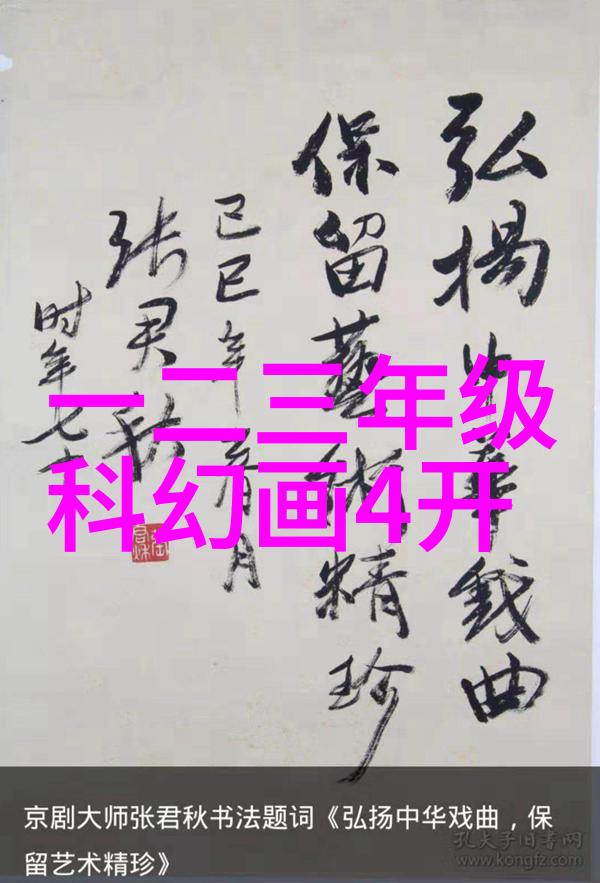 弘揚中華戯曲
保留藝術精珍
己巳年春月
张君秋
时年七十
一二三年级
科幻画4开
京剧大师张君秋书法题词《弘扬中华戏曲，保
留艺术精珍》
孔夫子旧书网
www.kongfz.com